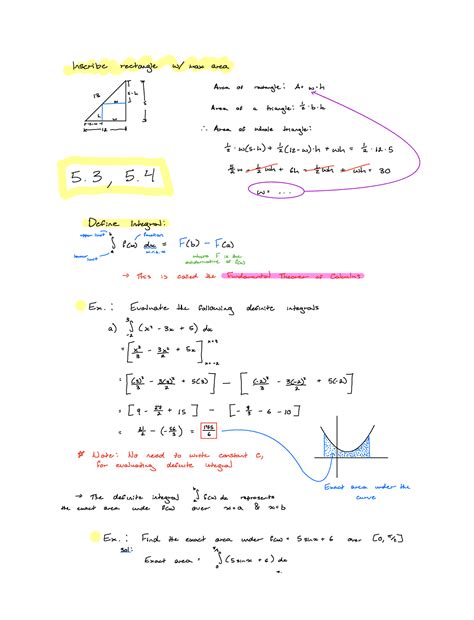 Inscribe rectangle w/ max area
Area of rectangle: A = w·h
Area of a triangle: 1/2·b·h
∴ Area of whole triangle:
1/2·w(5-h) + 1/2(12-w)·h + wh = 1/2·12·5
5/2 w - 1/2 wh + 6h - 1/2 wh + wh = 30
w = ...
13
5-h
w
h
5
12-w
12
5.3, 5.4
Define Integral:
upper limit
function
∫ₐᵇ f(x) dx = F(b) - F(a)
lower limit
w.r.t. x
where F is the
antiderivative of f(x)
→ This is called the Fundamental Theorem of Calculus
Ex.: Evaluate the following definite integrals
a) ∫₋₂³ (x² - 3x + 5) dx
= [x³/3 - 3x²/2 + 5x] x=3 x=-2
= [(3)³/3 - 3(3)²/2 + 5(3)] - [(-2)³/3 - 3(-2)²/2 + 5(-2)]
= [9 - 27/2 + 15] - [-8/3 - 6 - 10]
= 21/2 - (-56/3) = 175/6
* Note: No need to write constant C,
for evaluating definite integral
Exact area under the
curve
→ The definite integral ∫ₐᵇ f(x) dx represents
the exact area under f(x) over x=a & x=b
Ex.: Find the exact area under f(x) = 5sinx + 6 over [0, π/2]
Sol:
Exact area = ∫₀ (5sinx + 6) dx